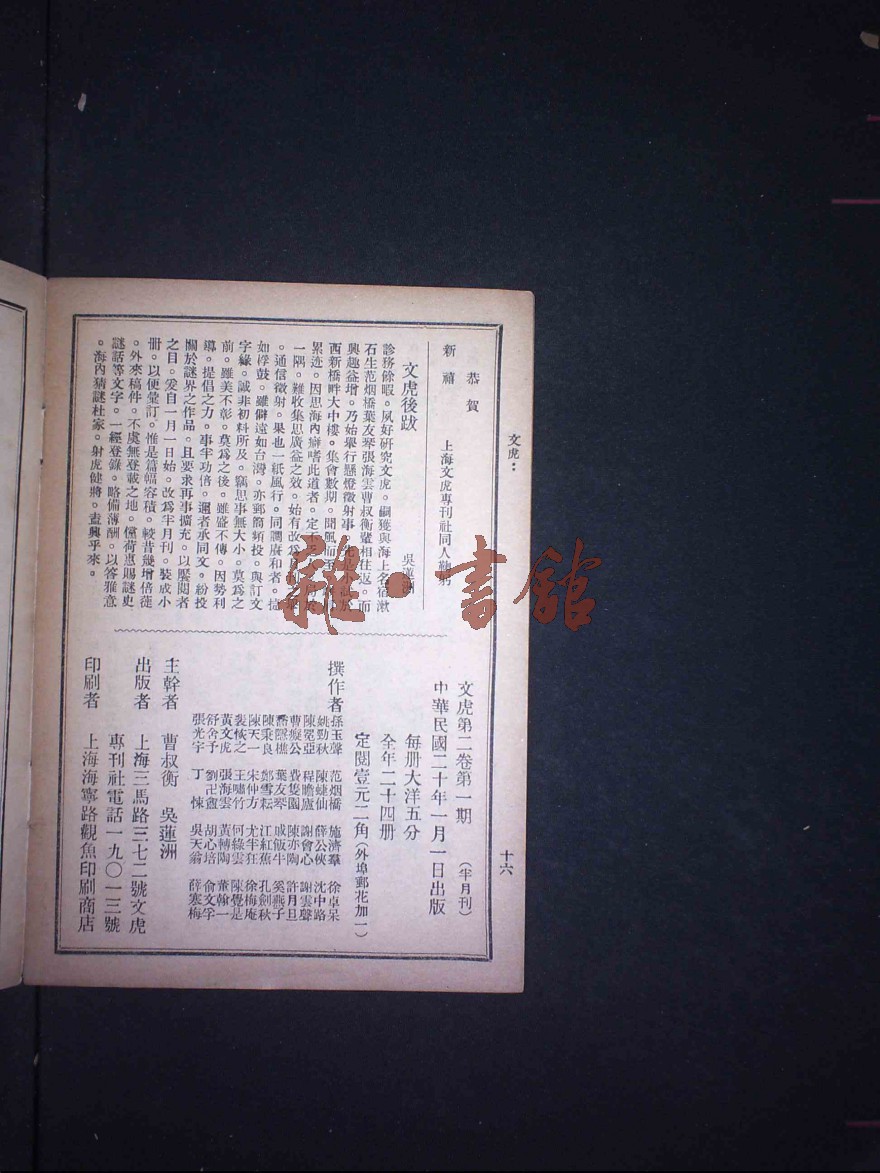 文虎：
十六
恭賀
新禧
上海文虎專刊社同人鞠躬
文虎後跋
吳蓮洲
診務餘暇。夙好研究文虎。嗣獲與海上名宿漱
石生范烟橋葉友琴張海雲曹叔衡輩相往返。而
興趣益增。乃始舉行懸燈徵射事。先
西新橋畔大中樓。集會數期。聞風而
累迹。因思海內癖嗜此道者。定
一隅。難收集思廣益之效。始有改為
。通信徵射。果也一紙風行。同調賡和者。
如桴鼓。雖僻遠如台灣。亦郵筒頻投。與訂文
字緣。誠非初料所及。竊思事無大小。莫為之
前。雖美不彰。莫為之後。雖盛不傳。因勢利
導。提倡之力。事半功倍。邇者承同文。紛投
關於謎界之作品。且要求再事擴充。以饜閱者
之目。爰自一月一日始。改為半月刊。裝成小
冊。以便彙訂。惟是篇幅容積。較昔幾增倍蓰
。外來稿件。不虞無登載之地。儻荷惠賜謎史
謎話等文字。一經登錄。略備薄酬。以答雅意
。海內猜謎杜家。射虎健將。盍興乎來。
文虎第二卷第一期
（半月刊）
中華民國二十年一月一日出版
每册大洋五分
全年二十四册
定閱壹元二角（外埠郵花加一）
撰作者
孫玉聲 范烟橋 施濟羣 徐卓呆
姚勁秋 陳蝶仙 薛公俠 沈中路
陳冕亞 程瞻廬 謝會心 謝雲聲
曹癡公 費隻園 陳亦陶 許月旦
葉友琴 戚飯牛 奚燕子
陳秉良 鄭雪耘 江紅蕉 孔劍秋
陳天一 宋仲方 尤半狂 徐梅庵
裴恢之 王嘯竹 何綠雲 陳覺是
黃文虎 張海雲 黃轉陶 董翰一
舒舍予 劉卍盦 胡心培 俞文孚
張光宇 丁悚 吳天翁 薛寒梅
主幹者 曹叔衡 吳蓮洲
出版者 上海三馬路三七二號文虎
專刊社電話一九〇一三號
印刷者 上海海寧路觀魚印刷商店
雜·書館